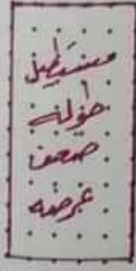 مستطيل
طوله
ضعف
عرضه